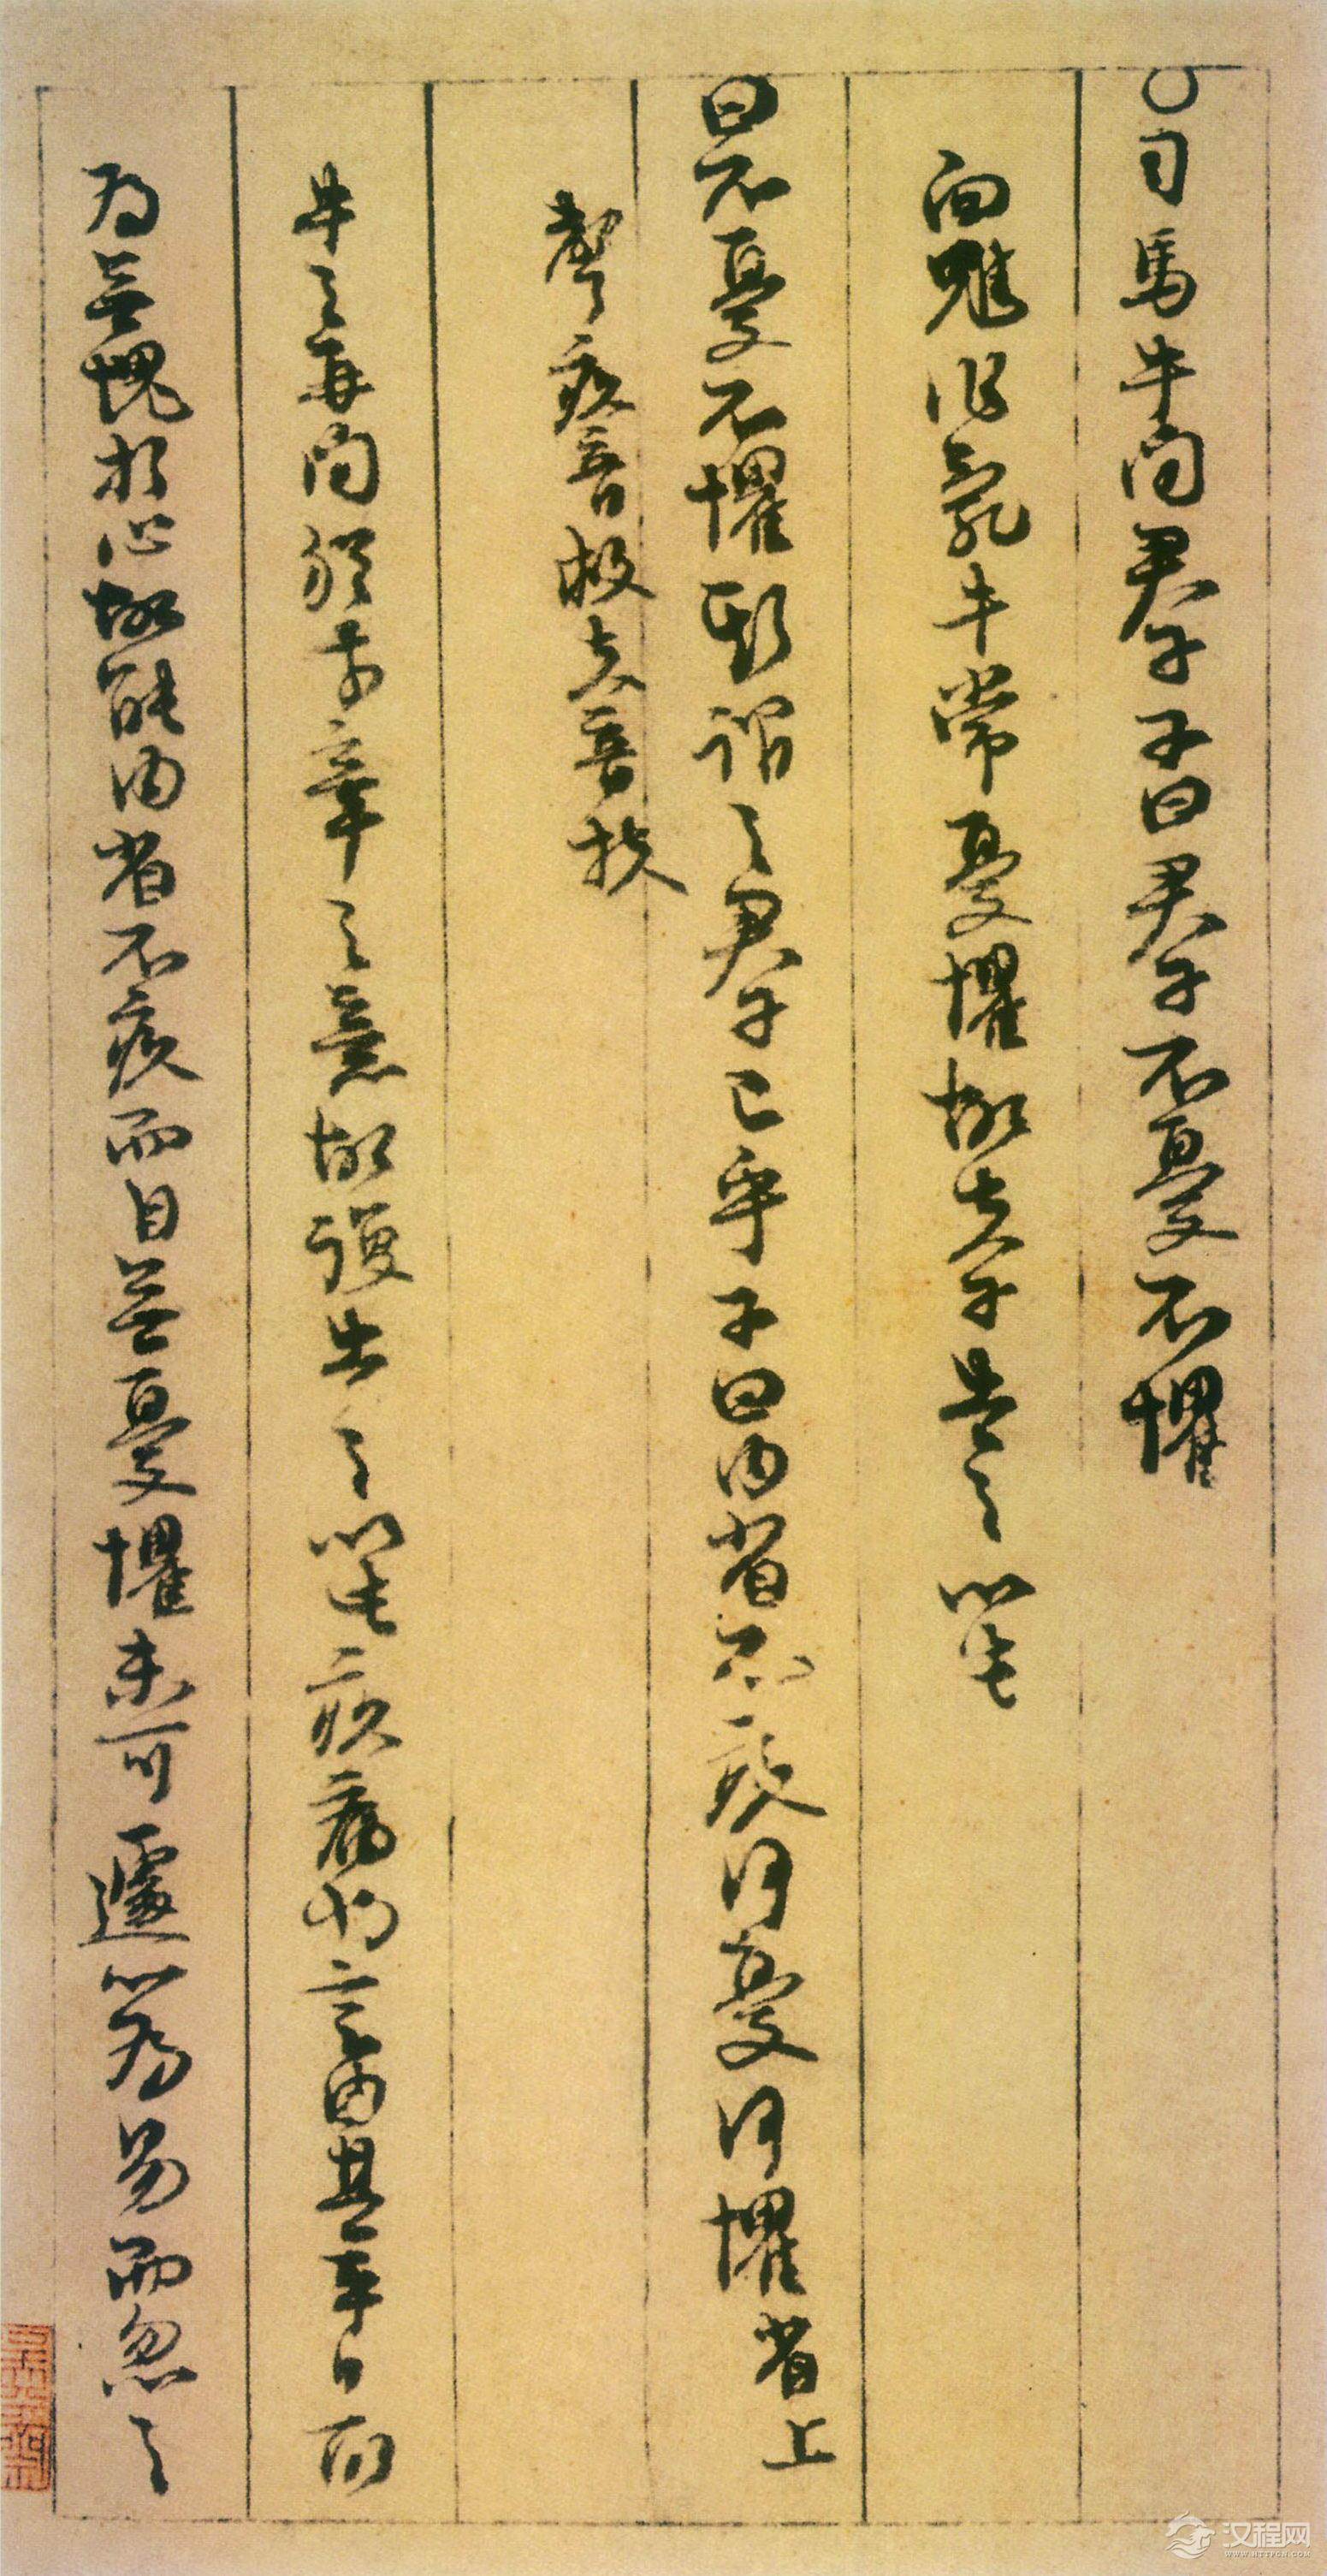 ○司馬牛問君子子曰君子不憂不懼
向魋作亂牛常憂懼故夫子告之以此
曰不憂不懼斯謂之君子已乎子曰內省不疚何憂何懼省上
聲疚音救夫音扶
牛之再問猶前章之意故復告之以此疚病也言由其平日所
為無愧於心故能內省不疚而自無憂懼未可遽以為易而忽之
汉程网
WWW.HTTPCN.COM